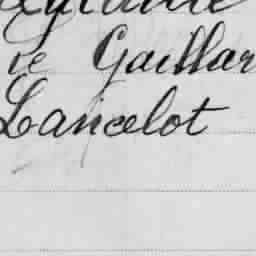 ie Gaillar
Lancelot